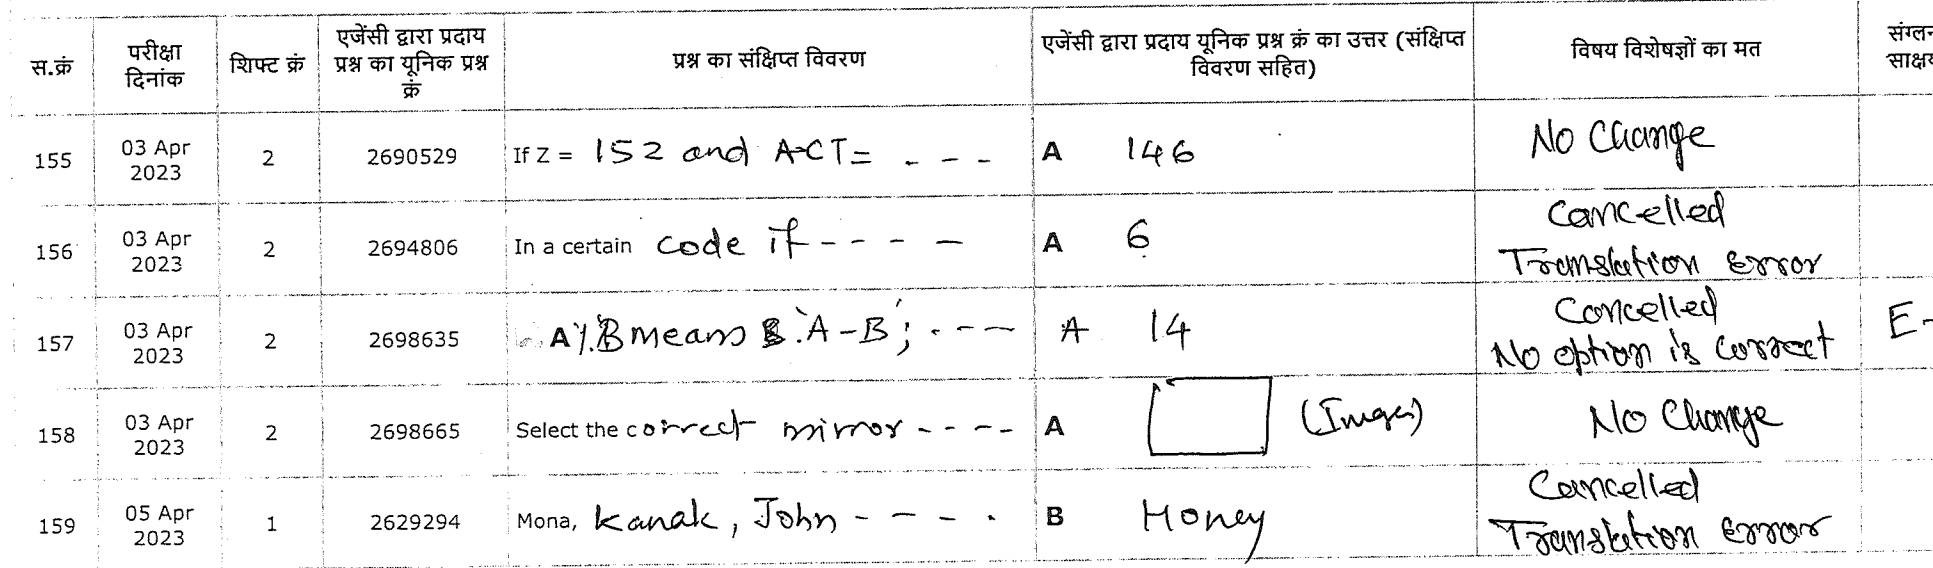 स.क्रं परीक्षा दिनांक शिफ्ट क्रं एजेंसी द्वारा प्रदाय प्रश्न का यूनिक प्रश्न क्रं प्रश्न का संक्षिप्त विवरण एजेंसी द्वारा प्रदाय यूनिक प्रश्न क्रं का उत्तर (संक्षिप्त विवरण सहित) विषय विशेषज्ञों का मत
155 03 Apr 2023 2 2690529 If Z = 152 and ACT= - - - A 146 No Change
156 03 Apr 2023 2 2694806 In a certain code if - - - - A 6 Cancelled Translation Error
157 03 Apr 2023 2 2698635 A%B means 'A-B'; - - - A 14 Cancelled No option is correct E-
158 03 Apr 2023 2 2698665 Select the correct mirror - - - - A (Image) No Change
159 05 Apr 2023 1 2629294 Mona, Kanak, John - - - - B Honey Cancelled Translation Error